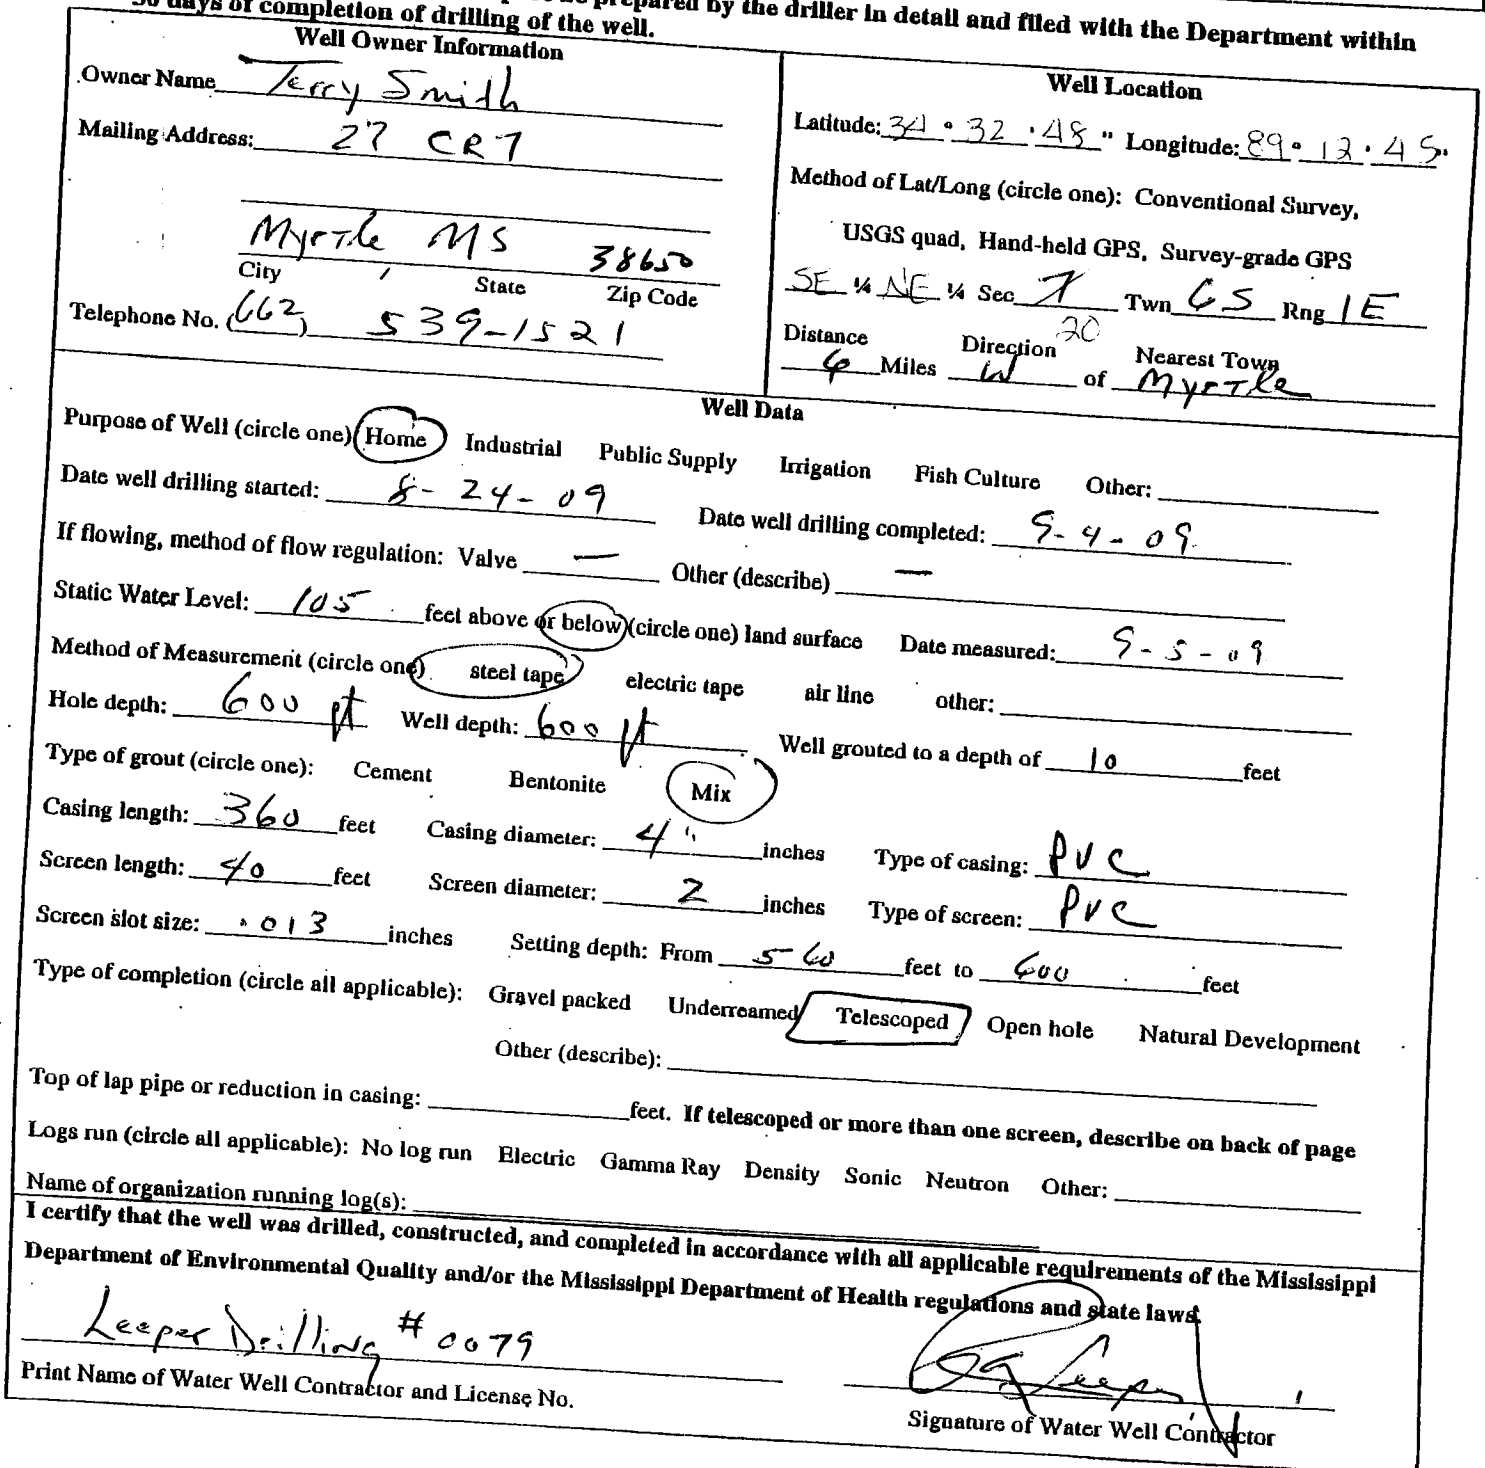 30 days of completion of drilling of the well. prepared by the driller in detail and filed with the Department within
Well Owner Information
Owner Name Terry Smith
Mailing Address: 27 CR 7
Myrtle MS 38650
City State Zip Code
Telephone No. (662) 539-1521
Well Location
Latitude: 34 ° 32 ' 48 " Longitude: 89 ° 12 ' 45 "
Method of Lat/Long (circle one): Conventional Survey,
USGS quad, Hand-held GPS, Survey-grade GPS
SE ¼ NE ¼ Sec 7 Twn 6S Rng 1E
20
Distance Direction Nearest Town
6 Miles W of Myrtle
Well Data
Purpose of Well (circle one) Home Industrial Public Supply Irrigation Fish Culture Other:
Date well drilling started: 8-24-09 Date well drilling completed: 9-4-09
If flowing, method of flow regulation: Valve — Other (describe) —
Static Water Level: 105 feet above or below (circle one) land surface Date measured: 9-5-09
Method of Measurement (circle one) steel tape electric tape air line other:
Hole depth: 600 ft Well depth: 600 ft Well grouted to a depth of 10 feet
Type of grout (circle one): Cement Bentonite Mix
Casing length: 360 feet Casing diameter: 4" inches Type of casing: PVC
Screen length: 40 feet Screen diameter: 2 inches Type of screen: PVC
Screen slot size: .013 inches Setting depth: From 560 feet to 600 feet
Type of completion (circle all applicable): Gravel packed Underreamed Telescoped Open hole Natural Development
Other (describe):
Top of lap pipe or reduction in casing: feet. If telescoped or more than one screen, describe on back of page
Logs run (circle all applicable): No log run Electric Gamma Ray Density Sonic Neutron Other:
Name of organization running log(s):
I certify that the well was drilled, constructed, and completed in accordance with all applicable requirements of the Mississippi
Department of Environmental Quality and/or the Mississippi Department of Health regulations and state laws.
Leeper Drilling # 0079
Print Name of Water Well Contractor and License No.
Leeper
Signature of Water Well Contractor